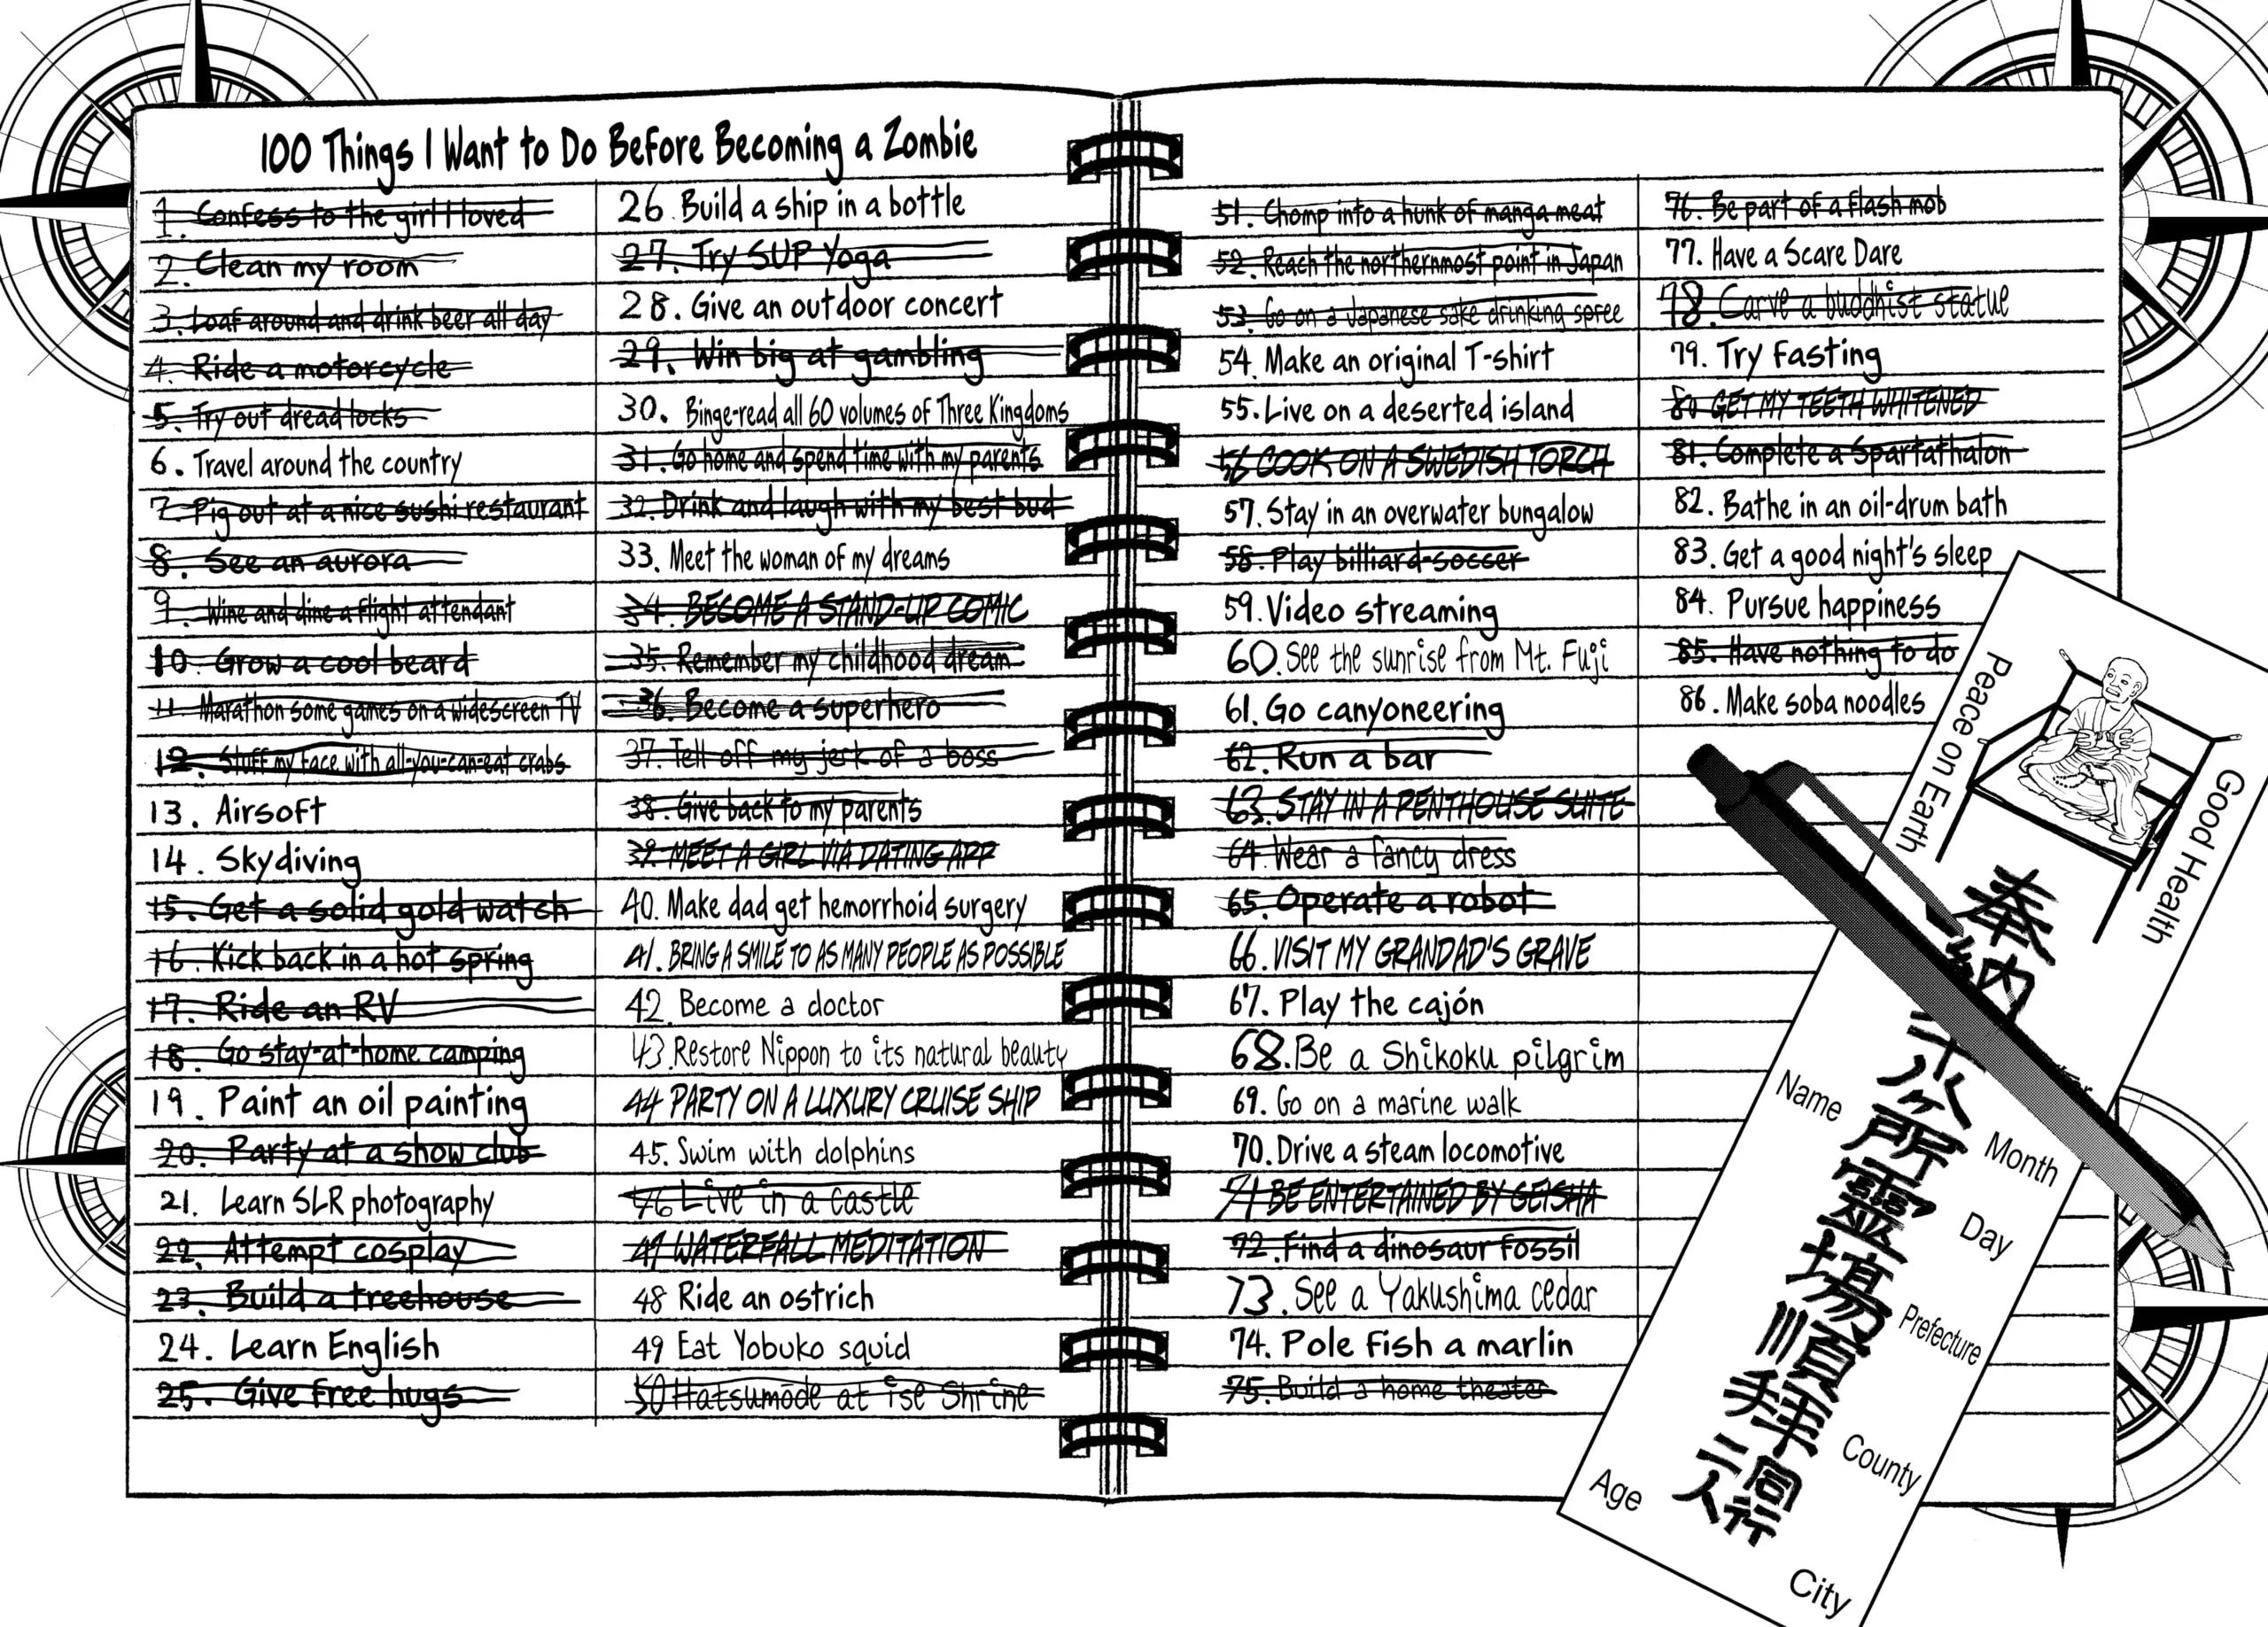 100 Things I Want to Do Before Becoming a Zombie
1. Confess to the girl I loved
2. Clean my room
3. Loaf around and drink beer all day
4. Ride a motorcycle
5. Try out dreadlocks
6. Travel around the country
7. Pig out at a nice sushi restaurant
8. See an aurora
9. Wine and dine a flight attendant
10. Grow a cool beard
11. Marathon some games on a widescreen TV
12. Stuff my face with all-you-can-eat crabs
13. Airsoft
14. Skydiving
15. Get a solid gold watch
16. Kick back in a hot spring
17. Ride an RV
18. Go stay-at-home camping
19. Paint an oil painting
20. Party at a show club
21. Learn SLR photography
22. Attempt cosplay
23. Build a treehouse
24. Learn English
25. Give free hugs
26. Build a ship in a bottle
27. Try SUP Yoga
28. Give an outdoor concert
29. Win big at gambling
30. Binge-read all 60 volumes of Three Kingdoms
31. Go home and spend time with my parents
32. Drink and laugh with my best bud
33. Meet the woman of my dreams
34. BECOME A STAND-UP COMIC
35. Remember my childhood dream
36. Become a superhero
37. Tell off my jerk of a boss
38. Give back to my parents
39. MEET A GIRL VIA DATING APP
40. Make dad get hemorrhoid surgery
41. BRING A SMILE TO AS MANY PEOPLE AS POSSIBLE
42. Become a doctor
43. Restore Nippon to its natural beauty
44 PARTY ON A LUXURY CRUISE SHIP
45. Swim with dolphins
46 Live in a castle
47 WATERFALL MEDITATION
48 Ride an ostrich
49 Eat Yobuko squid
50 Hatsumōde at ise Shrine
51. Chomp into a hunk of manga meat
52. Reach the northernmost point in Japan
53. Go on a Japanese sake drinking spree
54. Make an original T-shirt
55. Live on a deserted island
56 COOK ON A SWEDISH TORCH
57. Stay in an overwater bungalow
58. Play billiard-soccer
59. Video streaming
60. See the sunrise from Mt. Fuji
61. Go canyoneering
62. Run a bar
63. STAY IN A PENTHOUSE SUITE
64. Wear a fancy dress
65. Operate a robot
66. VISIT MY GRANDAD'S GRAVE
67. Play the cajón
68. Be a Shikoku pilgrim
69. Go on a marine walk
70. Drive a steam locomotive
71 BE ENTERTAINED BY GEISHA
72. Find a dinosaur fossil
73. See a Yakushima cedar
74. Pole fish a marlin
75. Build a home theater
76. Be part of a flash mob
77. Have a Scare Dare
78. Carve a buddhist statue
79. Try fasting
80 GET MY TEETH WHITENED
81. Complete a Spartathalon
82. Bathe in an oil-drum bath
83. Get a good night's sleep
84. Pursue happiness
85. Have nothing to do
86. Make soba noodles
Peace on Earth
Good Health
奉納
ヶ所霊場順拝
同行二人
Name
Month
Day
Prefecture
County
Age
City